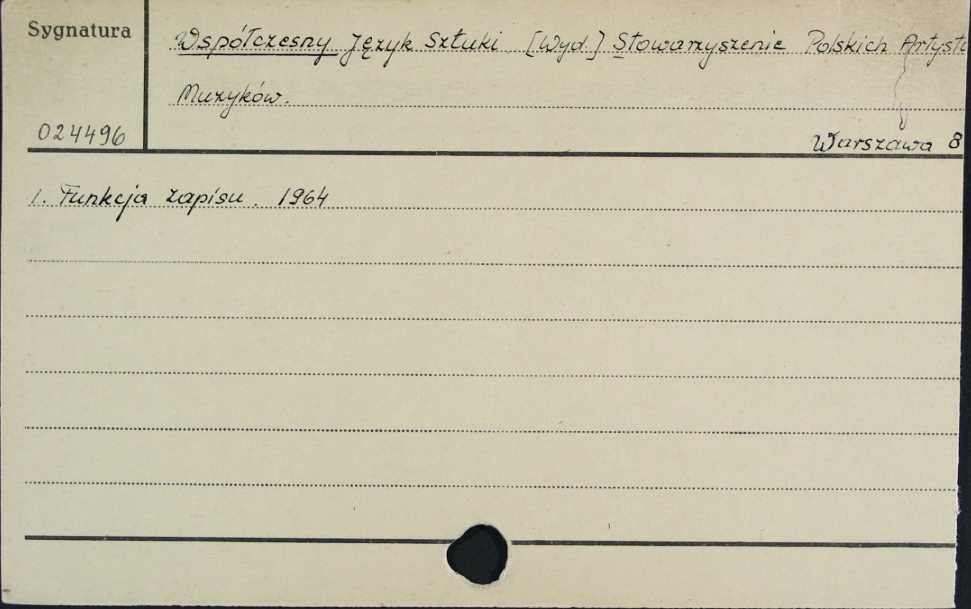 Sygnatura
Współczesny Język Sztuki [Wyd.] Stowarzyszenie Polskich Artystó
Muzyków.
024496
Warszawa 8
1. Funkcja zapisu. 1964